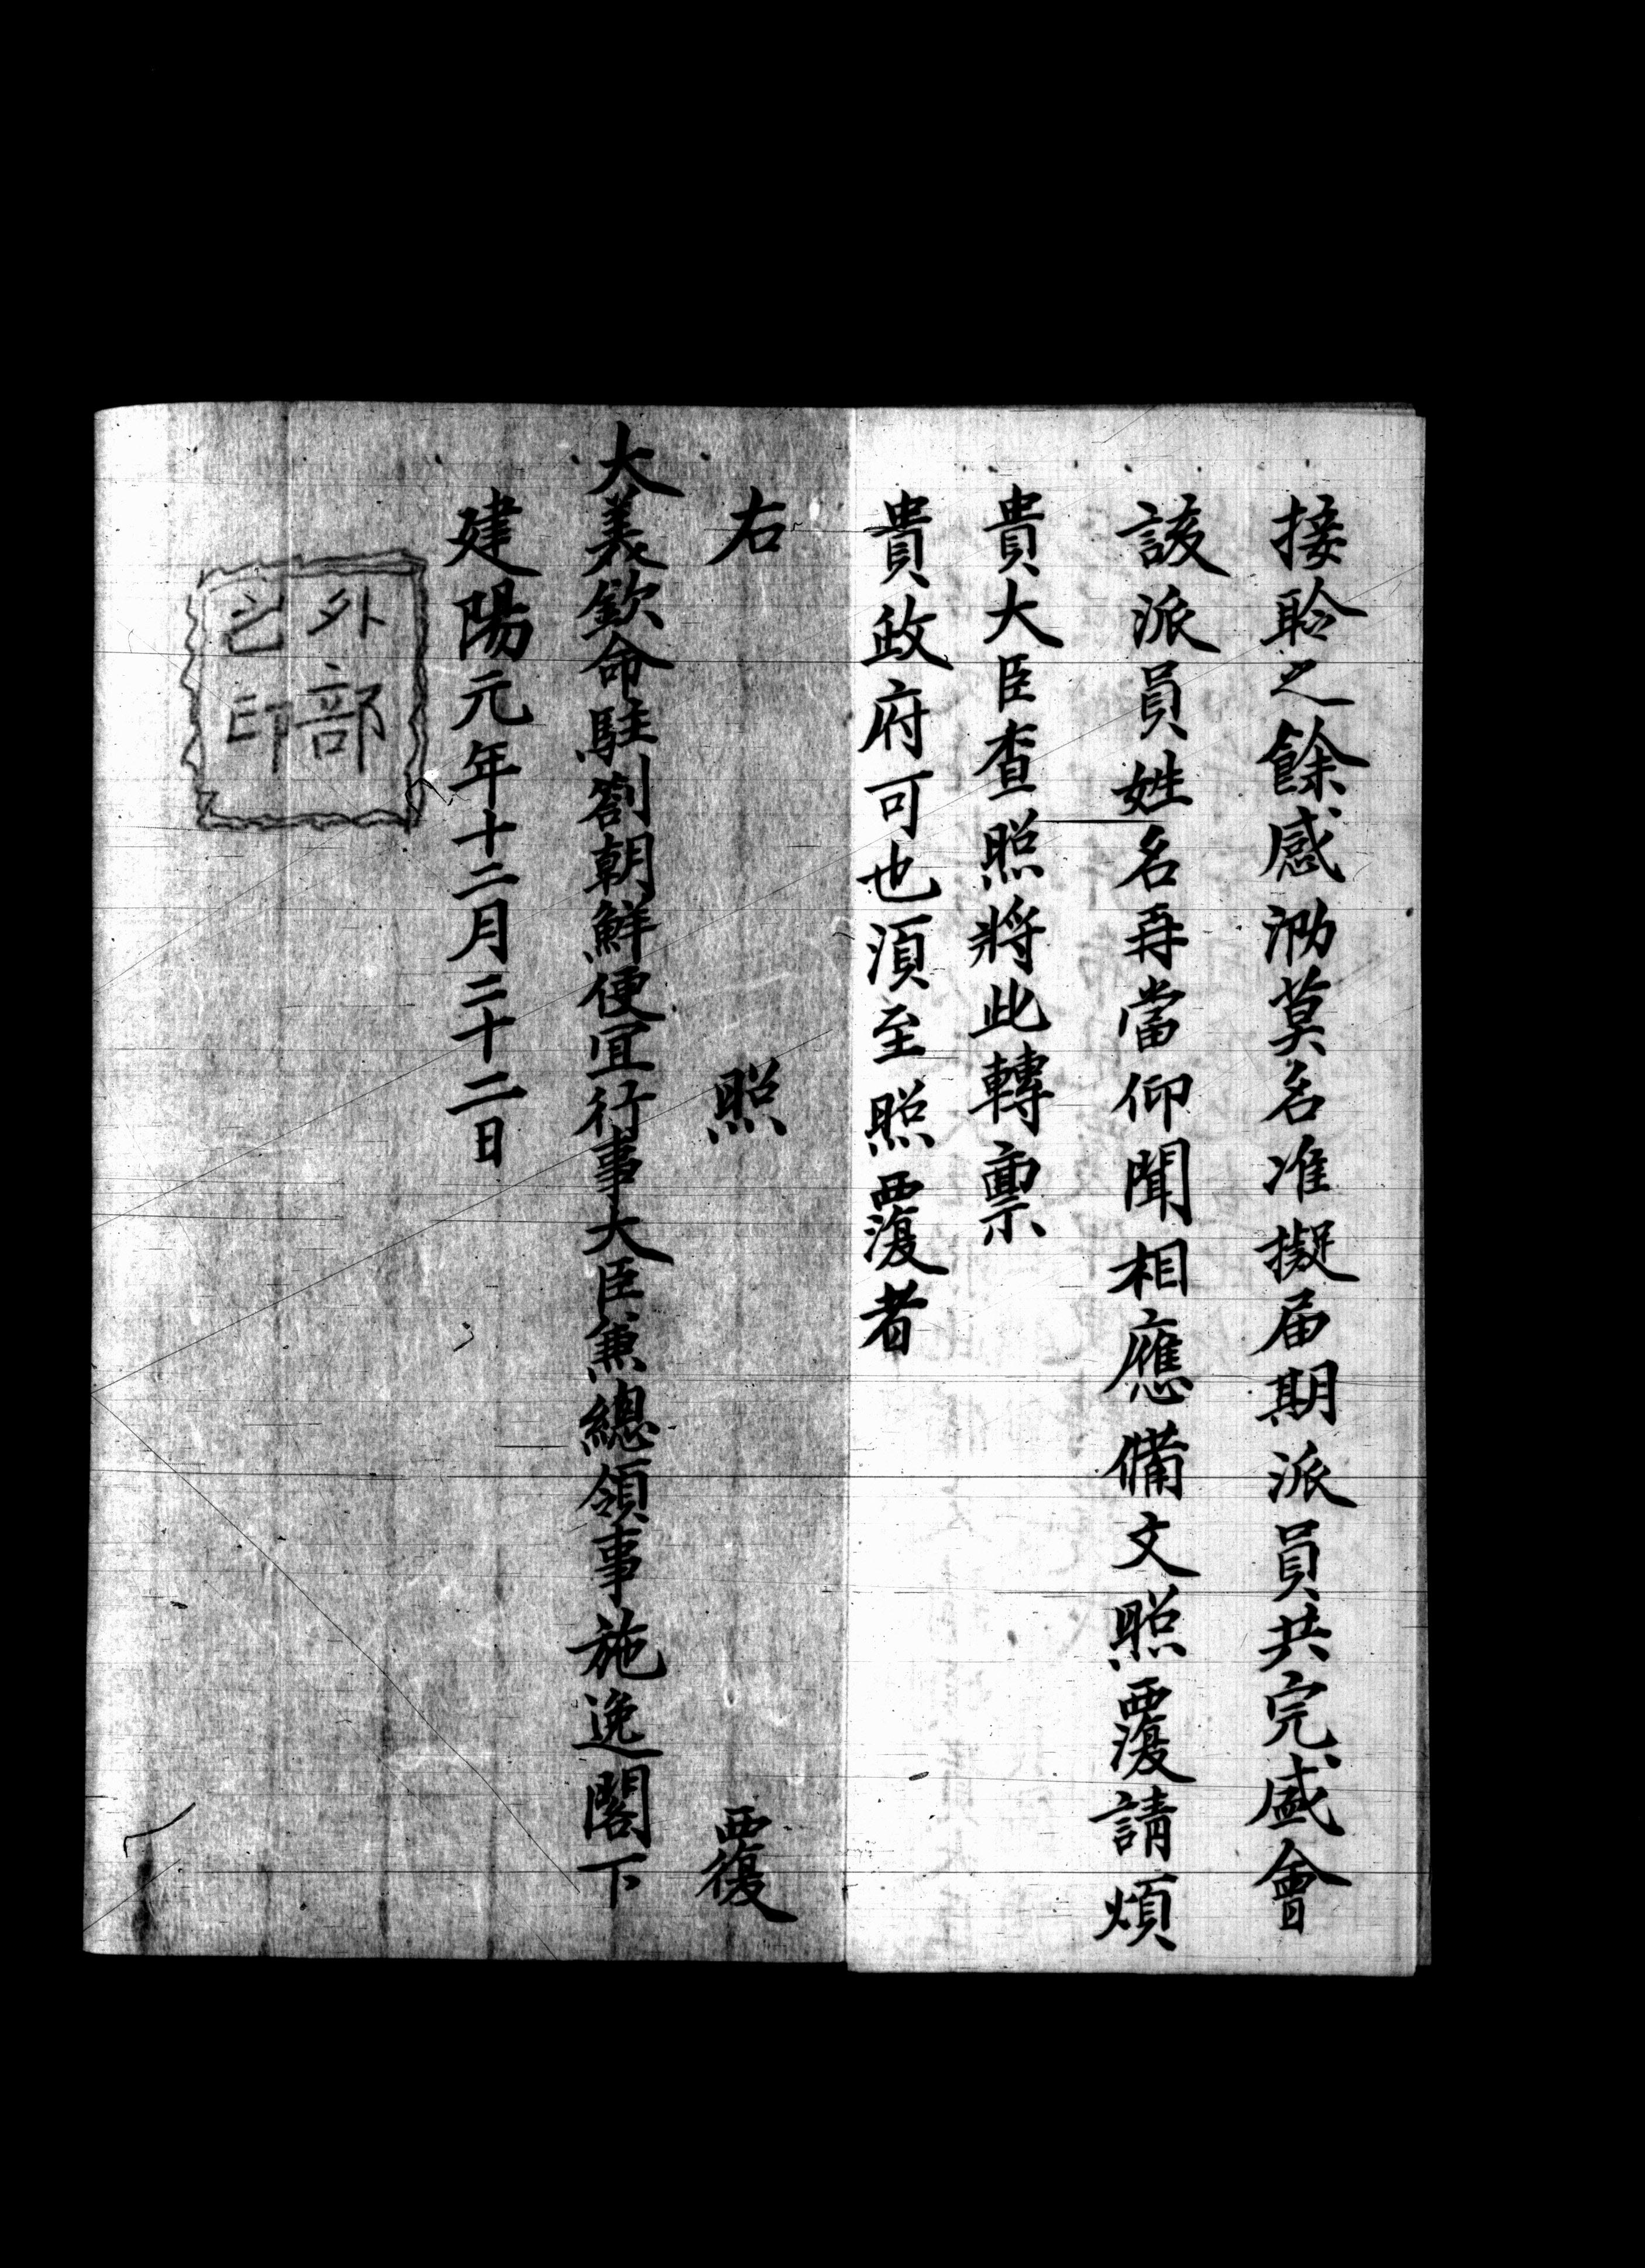 接聆之餘感泐莫名准擬届期派員共完盛會
該派員姓名再當仰聞相應備文照覆請煩
貴大臣查照將此轉稟
貴政府可也須至照覆者
右 照 覆
大美欽命駐劄朝鮮便宜行事大臣兼總領事施逸閣下
建陽元年十二月二十二日
外部
之印